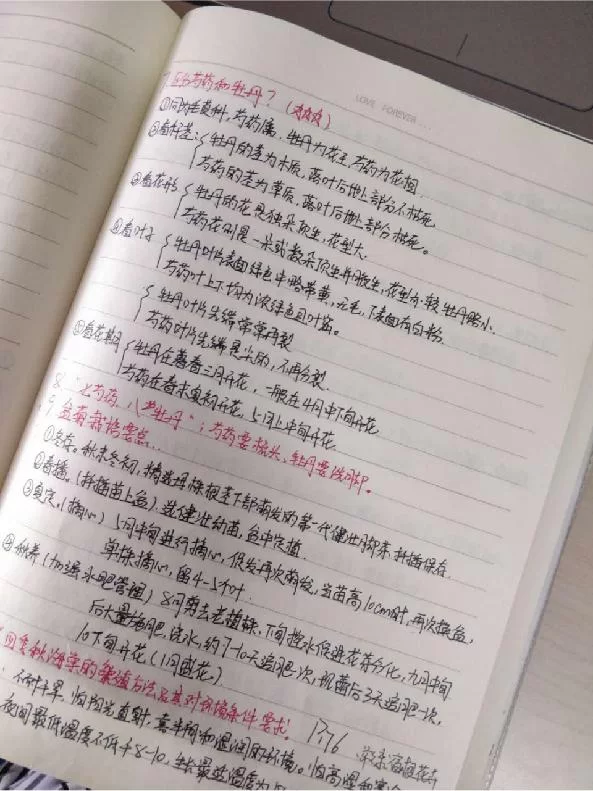 LOVE FOREVER...
区分芍药和牡丹?
①同为毛茛科,芍药属,牡丹为花王,芍药为花相
②看秆茎: 牡丹的茎为木质,落叶后地上部分不枯死
芍药的茎为草质,落叶后地上部分枯死。
③看花形 牡丹的花是独朵顶生,花型大.
芍药花则是一朵或数朵顶生并腋生,花型亦较牡丹略小.
④看叶子 牡丹叶片表面绿色中略带黄,无毛,下表面有白粉
芍药叶上下均为浓绿色且叶密。
牡丹叶片先端常常再裂
芍药叶片先端是尖的,不再分裂
⑤看花期 牡丹在暮春三月开花,一般在4月中下旬开花
芍药在春末夏初开花,5月上中旬开花
8 "七芍药,八牡丹";芍药要梳头,牡丹要洗脚。
9
①冬存。秋末冬初,摘选母株根茎下部萌发的第一代健壮脚芽扦插保存.
②春播。(扦插苗上盆)选健壮幼苗,盆中定植
③夏定。(摘心) 5月中旬进行摘心,促发再次萌发,当苗高10cm时,再次换盆,
单株摘心,留4-5个叶.
④秋养(加强水肥管理) 8月剪去老植株,下旬控水促进花芽分化,九月中旬
后大量施肥,浇水,约7-10天追肥一次,现蕾后3天追肥一次,
10下旬开花(11月盛花)
四季秋海棠的繁殖方法及其对环境条件要求.
不耐干旱,怕阳光直射,喜半阴和湿润的环境。怕高温
夜间最低温度不低于8-10,生长最适温度为